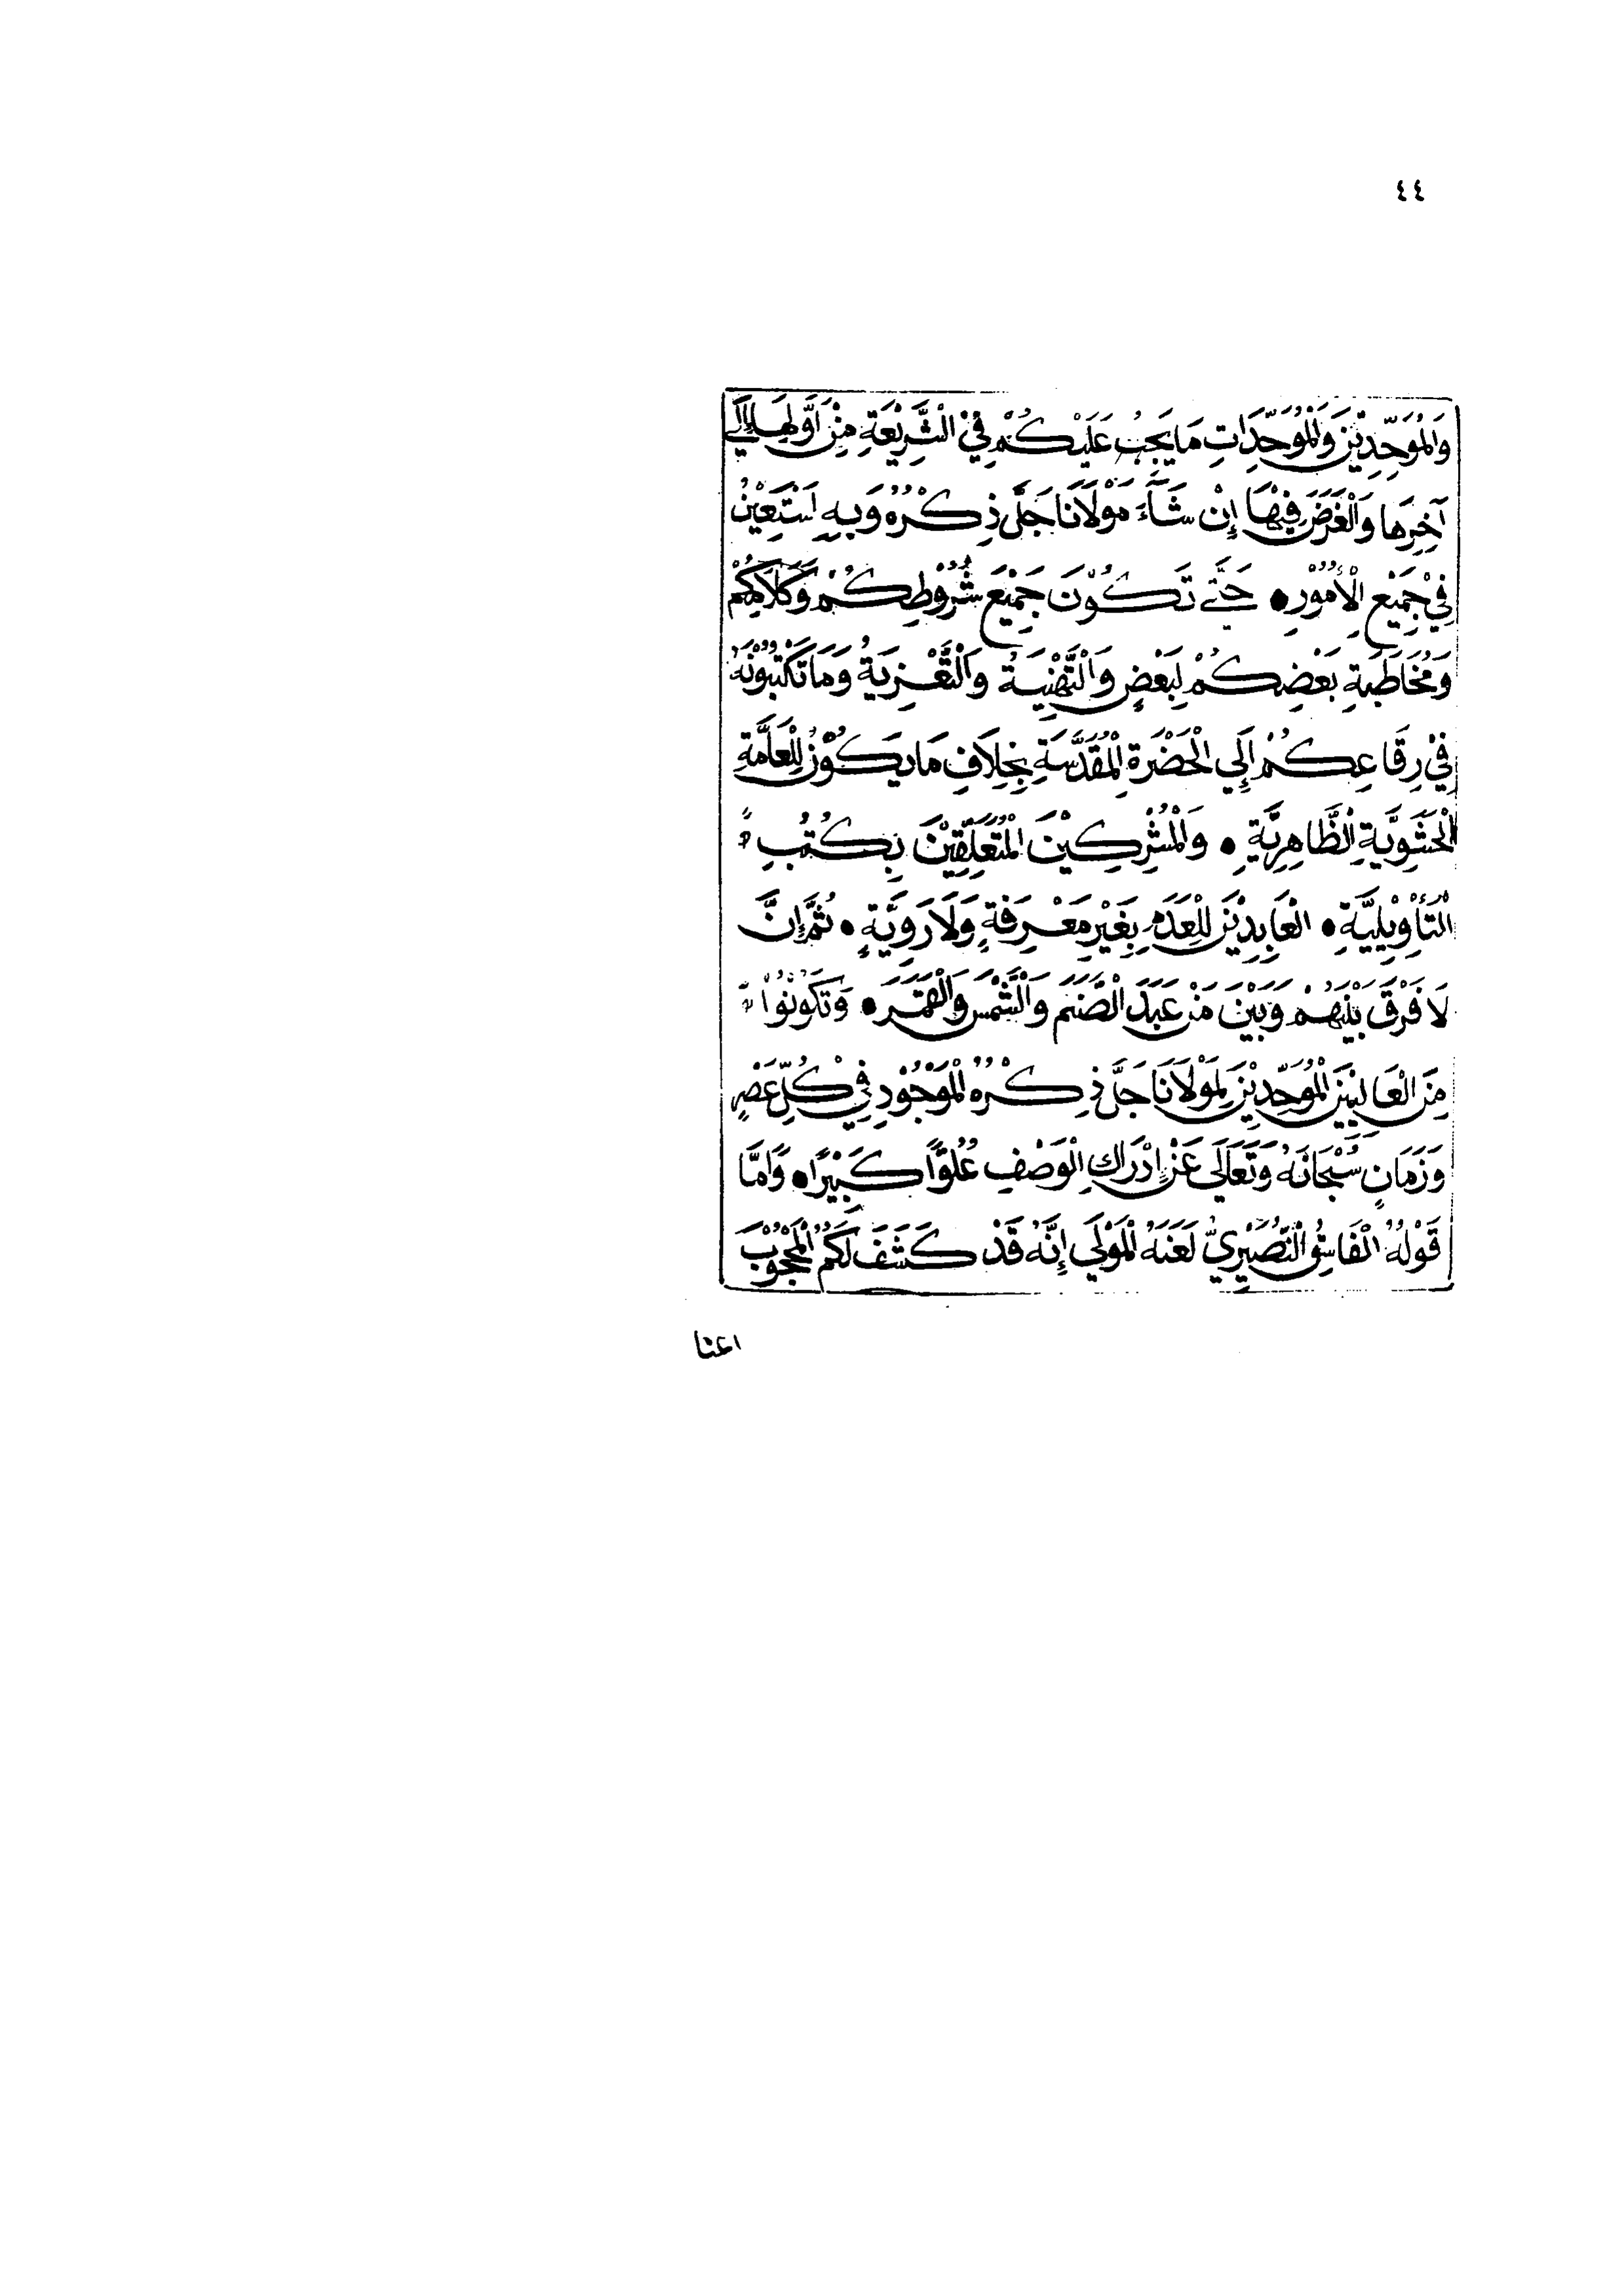 ٤٤
وَالْمُوَحِّدِيْنَ وَالْمُوَحِّدَاتِ مَا يَجِبُ عَلَيْكُمْ فِيْ الْشَّرِيْعَةِ مِنْ اَوَّلِهَا إِلَي
آخِرِهَا وَالْغَرَضَ فِيْهَا إِنْ شَآءَ مَوْلَانَا جَلَّ ذِكْرُهُ وَبِهِ اَسْتَعِيْنُ
فِيْ جَمِيْعِ الْأُمُوْرِ • حَتَّى تَكُوْنَ جَمِيْعَ شُرُوْطِكُمْ وَكَلَامِكُمْ
وَمُخَاطَبَةِ بَعْضِكُمْ لِبَعْضٍ وَالْتَّهْنِيَةُ وَالْتَّعْزِيَةُ وَمَا تَكْتُبُوْنَهُ
فِيْ رِقَاعِكُمْ إِلَي الْحَضْرَةِ الْمُقَدَّسَةِ بِخِلَافِ مَا يَكُوْنُ لِلْعَامَّةِ
الْحَشَوِيَّةِ الْظَّاهِرِيَّةِ • وَالْمُشْرِكِيْنَ الْمُتَعَلِّقِيْنَ بِكُتُبِ
الْتَأْوِيْلِيَّةِ • الْعَابِدِيْنَ لِلْعَدَمِ بِغَيْرِ مَعْرِفَةٍ وَلَا رَوِيَّةٍ • ثُمَّ إِنَّ
لَا فَرْقَ بَيْنَهُمْ وَبَيْنَ مَنْ عَبَدَ الْصَّنَمَ وَالْشَّمْسَ وَالْقَمَرَ • وَتَكُوْنُوْا
مِنَ الْعَالَمِيْنَ الْمُوَحِّدِيْنَ لِمَوْلَانَا جَلَّ ذِكْرُهُ الْمَوْجُوْدِ فِيْ كُلِّ عَصْرٍ
وَزَمَانٍ سُبْحَانَهُ وَتَعَالَي عَنْ إِدْرَاكِ الْوَصْفِ عُلُوًّا كَبِيْرًا • وَاَمَّا
قَوْلُهُ الْفَاسِقُ الْنُّصَيْرِيُّ لَعَنَهُ الْمَوْلَي إِنَّهُ قَدْ كَشَفَ لَكُمُ الْمَحْجُوْبَ